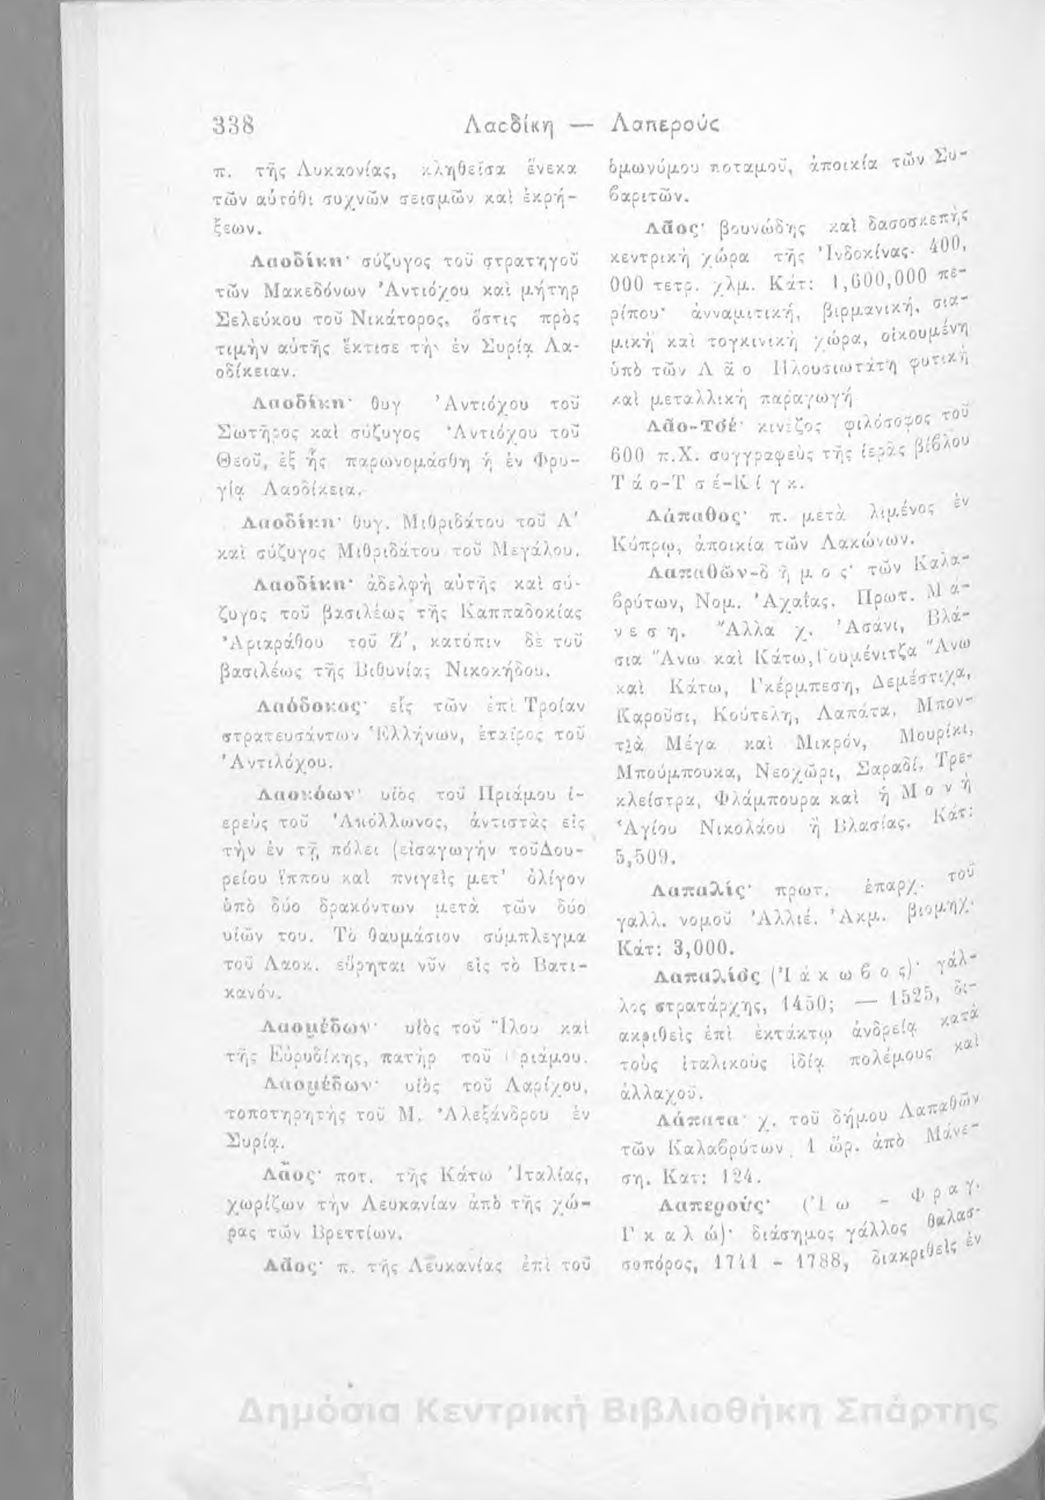 338
Λαοδίκη — Λαπερούς
π. τῆς Λυκαονίας, κληθεῖσα ἕνεκα
τῶν αὐτόθι συχνῶν σεισμῶν καὶ ἐκρή-
ξεων.
Λαοδίκη· σύζυγος τοῦ στρατηγοῦ
τῶν Μακεδόνων Ἀντιόχου καὶ μήτηρ
Σελεύκου τοῦ Νικάτορος, ὅστις πρὸς
τιμὴν αὐτῆς ἔκτισε τὴν ἐν Συρίᾳ Λα-
οδίκειαν.
Λαοδίκη· θυγ Ἀντιόχου τοῦ
Σωτῆρος καὶ σύζυγος Ἀντιόχου τοῦ
Θεοῦ, ἐξ ἧς παρωνομάσθη ἡ ἐν Φρυ-
γίᾳ Λαοδίκεια.
Λαοδίκη· θυγ. Μιθριδάτου τοῦ Α΄
καὶ σύζυγος Μιθριδάτου τοῦ Μεγάλου.
Λαοδίκη· ἀδελφὴ αὐτῆς καὶ σύ-
ζυγος τοῦ βασιλέως τῆς Καππαδοκίας
Ἀριαράθου τοῦ Ζ΄, κατόπιν δὲ τοῦ
βασιλέως τῆς Βιθυνίας Νικοκήδου.
Λαόδοκος· εἷς τῶν ἐπὶ Τροίαν
στρατευσάντων Ἑλλήνων, ἑταῖρος τοῦ
Ἀντιλόχου.
Λαοκόων· υἱὸς τοῦ Πριάμου ἱ-
ερεὺς τοῦ Ἀπόλλωνος, ἀντιστὰς εἰς
τὴν ἐν τῇ πόλει (εἰσαγωγὴν τοῦΔου-
ρείου ἵππου καὶ πνιγεὶς μετ' ὀλίγον
ὑπὸ δύο δρακόντων μετὰ τῶν δύο
υἱῶν του. Τὸ θαυμάσιον σύμπλεγμα
τοῦ Λαοκ. εὕρηται νῦν εἰς τὸ Βατι-
κανόν.
Λαομέδων· υἱὸς τοῦ Ἴλου καὶ
τῆς Εὐρυδίκης, πατὴρ τοῦ Πριάμου.
Λαομέδων· υἱὸς τοῦ Λαρίχου,
τοποτηρητὴς τοῦ Μ. Ἀλεξάνδρου ἐν
Συρίᾳ.
Λᾶος· ποτ. τῆς Κάτω Ἰταλίας,
χωρίζων τὴν Λευκανίαν ἀπὸ τῆς χώ-
ρας τῶν Βρεττίων.
Λᾶος· π. τῆς Λευκανίας ἐπὶ τοῦ
ὁμωνύμου ποταμοῦ, ἀποικία τῶν Συ-
βαριτῶν.
Λᾶος· βουνώδης καὶ δασοσκεπὴς
κεντρικὴ χώρα τῆς Ἰνδοκίνας· 400,
000 τετρ. χλμ. Κάτ: 1,600,000 πε-
ρίπου· ἀνναμιτική, βιρμανική, σια-
μικὴ καὶ τογκινικὴ χώρα, οἰκουμένη
ὑπὸ τῶν Λᾶο Πλουσιωτάτη φυτικὴ
καὶ μεταλλικὴ παραγωγή
Λᾶο-Τσέ· κινέζος φιλόσοφος τοῦ
600 π.Χ. συγγραφεὺς τῆς ἱερᾶς βίβλου
Τάο-Τσέ-Κίγκ.
Λάπαθος· π. μετὰ λιμένος ἐν
Κύπρῳ, ἀποικία τῶν Λακώνων.
Λαπαθῶν-δῆμος· τῶν Καλα-
βρύτων, Νομ. Ἀχαΐας. Πρωτ. Μά-
νεση. Ἄλλα χ. Ἀσάνι, Βλά-
σια Ἄνω καὶ Κάτω, Γουμένιτζα Ἄνω
καὶ Κάτω, Γκέρμπεση, Δεμέστιχα,
Καροῦσι, Κούτελη, Λαπάτα, Μπον-
τιὰ Μέγα καὶ Μικρόν, Μουρίκι,
Μπούμπουκα, Νεοχῶρι, Σαραδί, Τρε-
κλείστρα, Φλάμπουρα καὶ ἡ Μονὴ
Ἁγίου Νικολάου ἢ Βλασίας. Κάτ:
5,509.
Λαπαλίς· πρωτ. ἐπαρχ. τοῦ
γαλλ. νομοῦ Ἀλλιέ. Ἀκμ. βιομηχ.
Κάτ: 3,000.
Λαπαλίδς (Ἰάκωβος)· γάλ-
λος στρατάρχης, 1450; — 1525, δι-
ακριθεὶς ἐπὶ ἐκτάκτῳ ἀνδρείᾳ κατὰ
τοὺς ἰταλικοὺς ἰδίᾳ πολέμους καὶ
ἀλλαχοῦ.
Λάπατα· χ. τοῦ δήμου Λαπαθῶν
τῶν Καλαβρύτων, 1 ὥρ. ἀπὸ Μάνε-
ση. Κατ: 124.
Λαπερούς· (Ἰω - Φραγ.
Γκαλώ)· διάσημος γάλλος θαλασ-
σοπόρος, 1741 - 1788, διακριθεὶς ἐν
Δημόσια Κεντρική Βιβλιοθήκη Σπάρτης